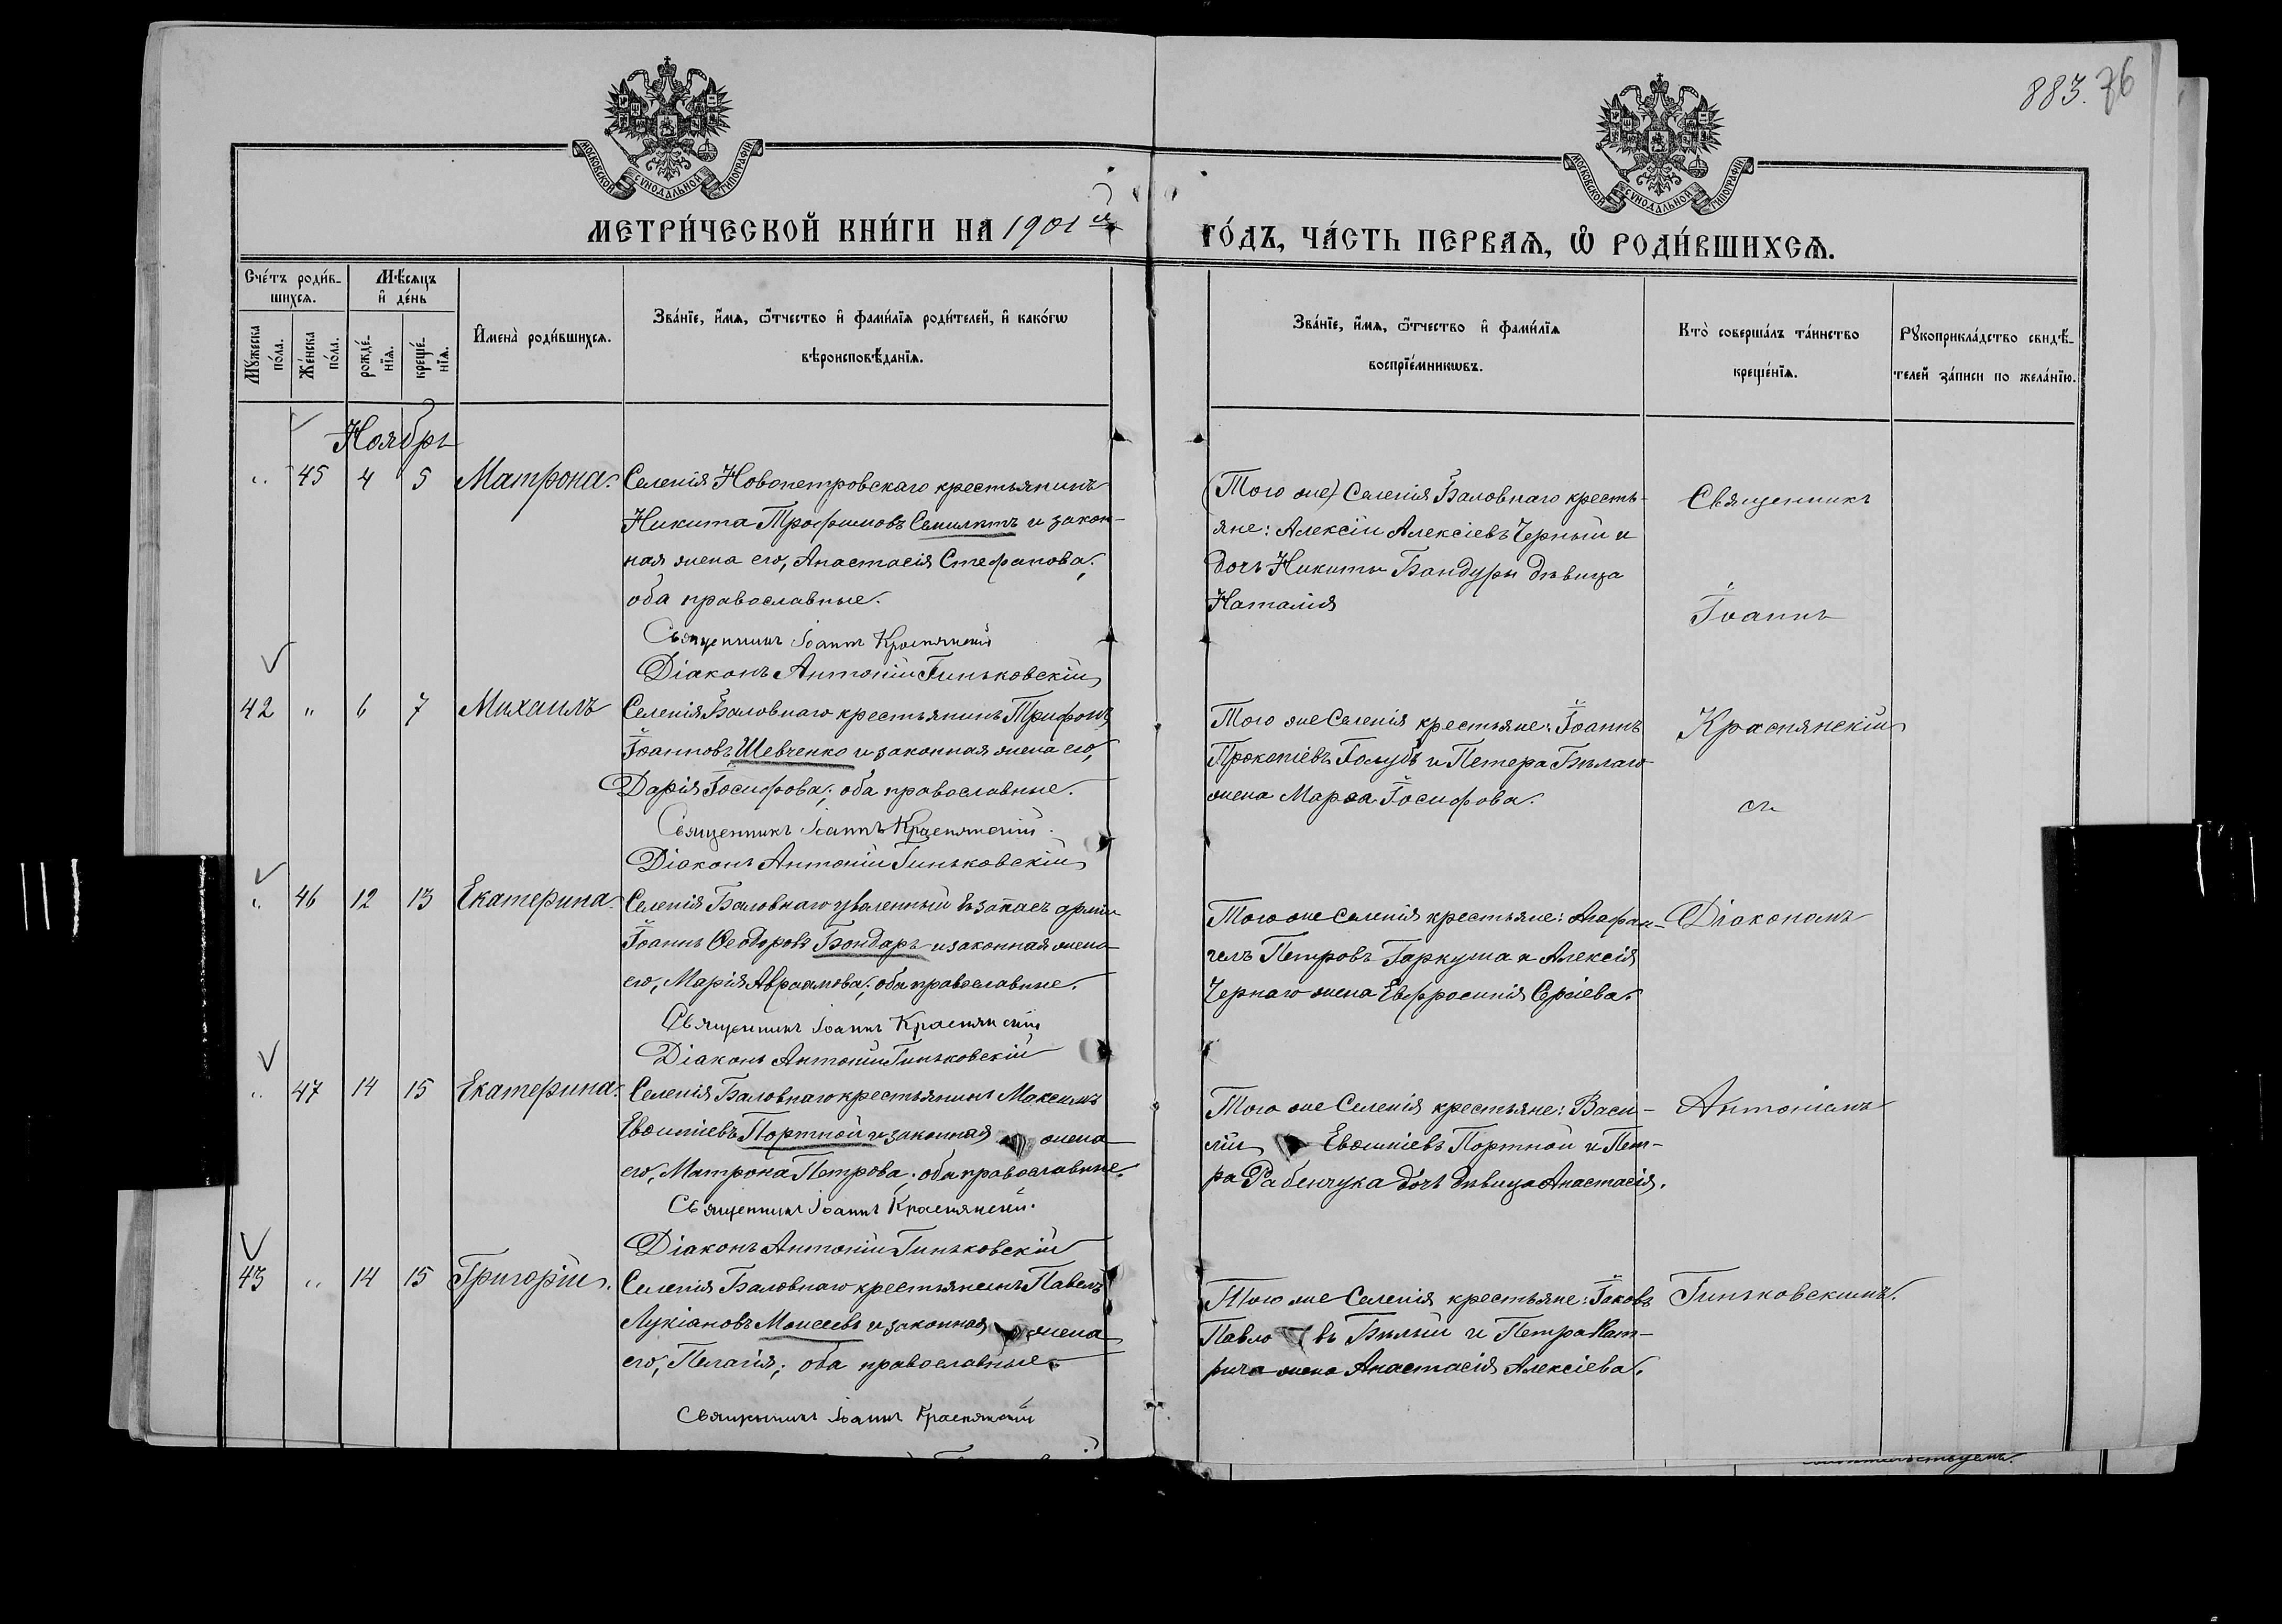 883. 76
МОСКОВСКОЙ СѴНОДАЛЬНОЙ ТИПОГРАФІИ
МОСКОВСКОЙ СѴНОДАЛЬНОЙ ТИПОГРАФІИ
МЕТРИ́ЧЕСКОЙ КНИ́ГИ НА 1901й
ГО́ДЪ, ЧА́СТЬ ПЕРВАѦ, Ѡ҆ РОДИ́ВШИХСѦ.
Сче́тъ роди́в-
шихсѧ.
Мѣ́сѧцъ
и҆ де́нь
Мꙋжеска
по́ла.
Же́нска
по́ла.
рожде́-
нїѧ.
креще́-
нїѧ.
И҆мена̀ роди́вшихсѧ.
Зва́нїе, и҆́мѧ, ѻ҆́тчество и҆ фами́лїѧ роди́телей, и҆ како́гѡ
вѣроисповѣ́данїѧ.
Зва́нїе, и҆́мѧ, ѻ҆́тчество и҆ фами́лїѧ
воспрїе́мникѡвъ.
Кто̀ соверша́лъ та́инство
креще́нїѧ.
Рꙋкоприкла́дство свидѣ́-
телей за́писи по жела́нїю.
Ноябрь
" 45 4 5 Матрона.
Селенія Новопетровскаго крестьянинъ
Никита Трофимовъ Семилѣтъ и закон-
ная жена его, Анастасія Стефанова;
оба православные.
Священникъ Іоаннъ Краснянскій
Діаконъ Антоній Гиньковскій
(Того же) Селенія Баловнаго кресть-
яне: Алексій Алексіевъ Черный и
дочь Никиты Бандуры дѣвица
Наталія
Священникъ
Іоаннъ
42 " 6 7 Михаилъ
Селенія Баловнаго крестьянинъ Трифонъ
Іоанновъ Шевченко и законная жена его,
Дарія Іосифова; оба православные.
Священникъ Іоаннъ Краснянскій.
Діаконъ Антоній Гиньковскій
Того же Селенія крестьяне: Іоаннъ
Прокопіевъ Голубъ и Петера Бѣлаго
жена Марѳа Іосифова.
Краснянскій
съ
" 46 12 13 Екатерина.
Селенія Баловнаго уволенный въ запасъ арміи
Іоаннъ Ѳеодоровъ Бондарь и законная жена
его, Марія Авраамова; оба православные.
Священникъ Іоаннъ Краснянскій
Діаконъ Антоній Гиньковскій
Того же Селенія крестьяне: Агафан-
гелъ Петровъ Гаркуша и Алексія
Чернаго жена Евфросинія Сергіева.
Діакономъ
" 47 14 15 Екатерина.
Селенія Баловнаго крестьянинъ Максимъ
Евѳиміевъ Портной и законная жена
его, Матрона Петрова; оба православные.
Священникъ Іоаннъ Краснянскій.
Діаконъ Антоній Гиньковскій
Того же Селенія крестьяне: Васи-
лій Евѳиміевъ Портной и Пет-
ра Рабенчука дочь дѣвица Анастасія.
Антоніемъ
43 " 14 15 Григорій.
Селенія Баловнаго крестьянинъ Павелъ
Лукіановъ Моисеевъ и законная жена
его, Пелагія; оба православные.
Священникъ Іоаннъ Краснянскій
Того же Селенія крестьяне: Іаковъ
Павловъ Бѣлый и Петра Кат-
рича жена Анастасія Алексіева.
Гиньковскимъ.